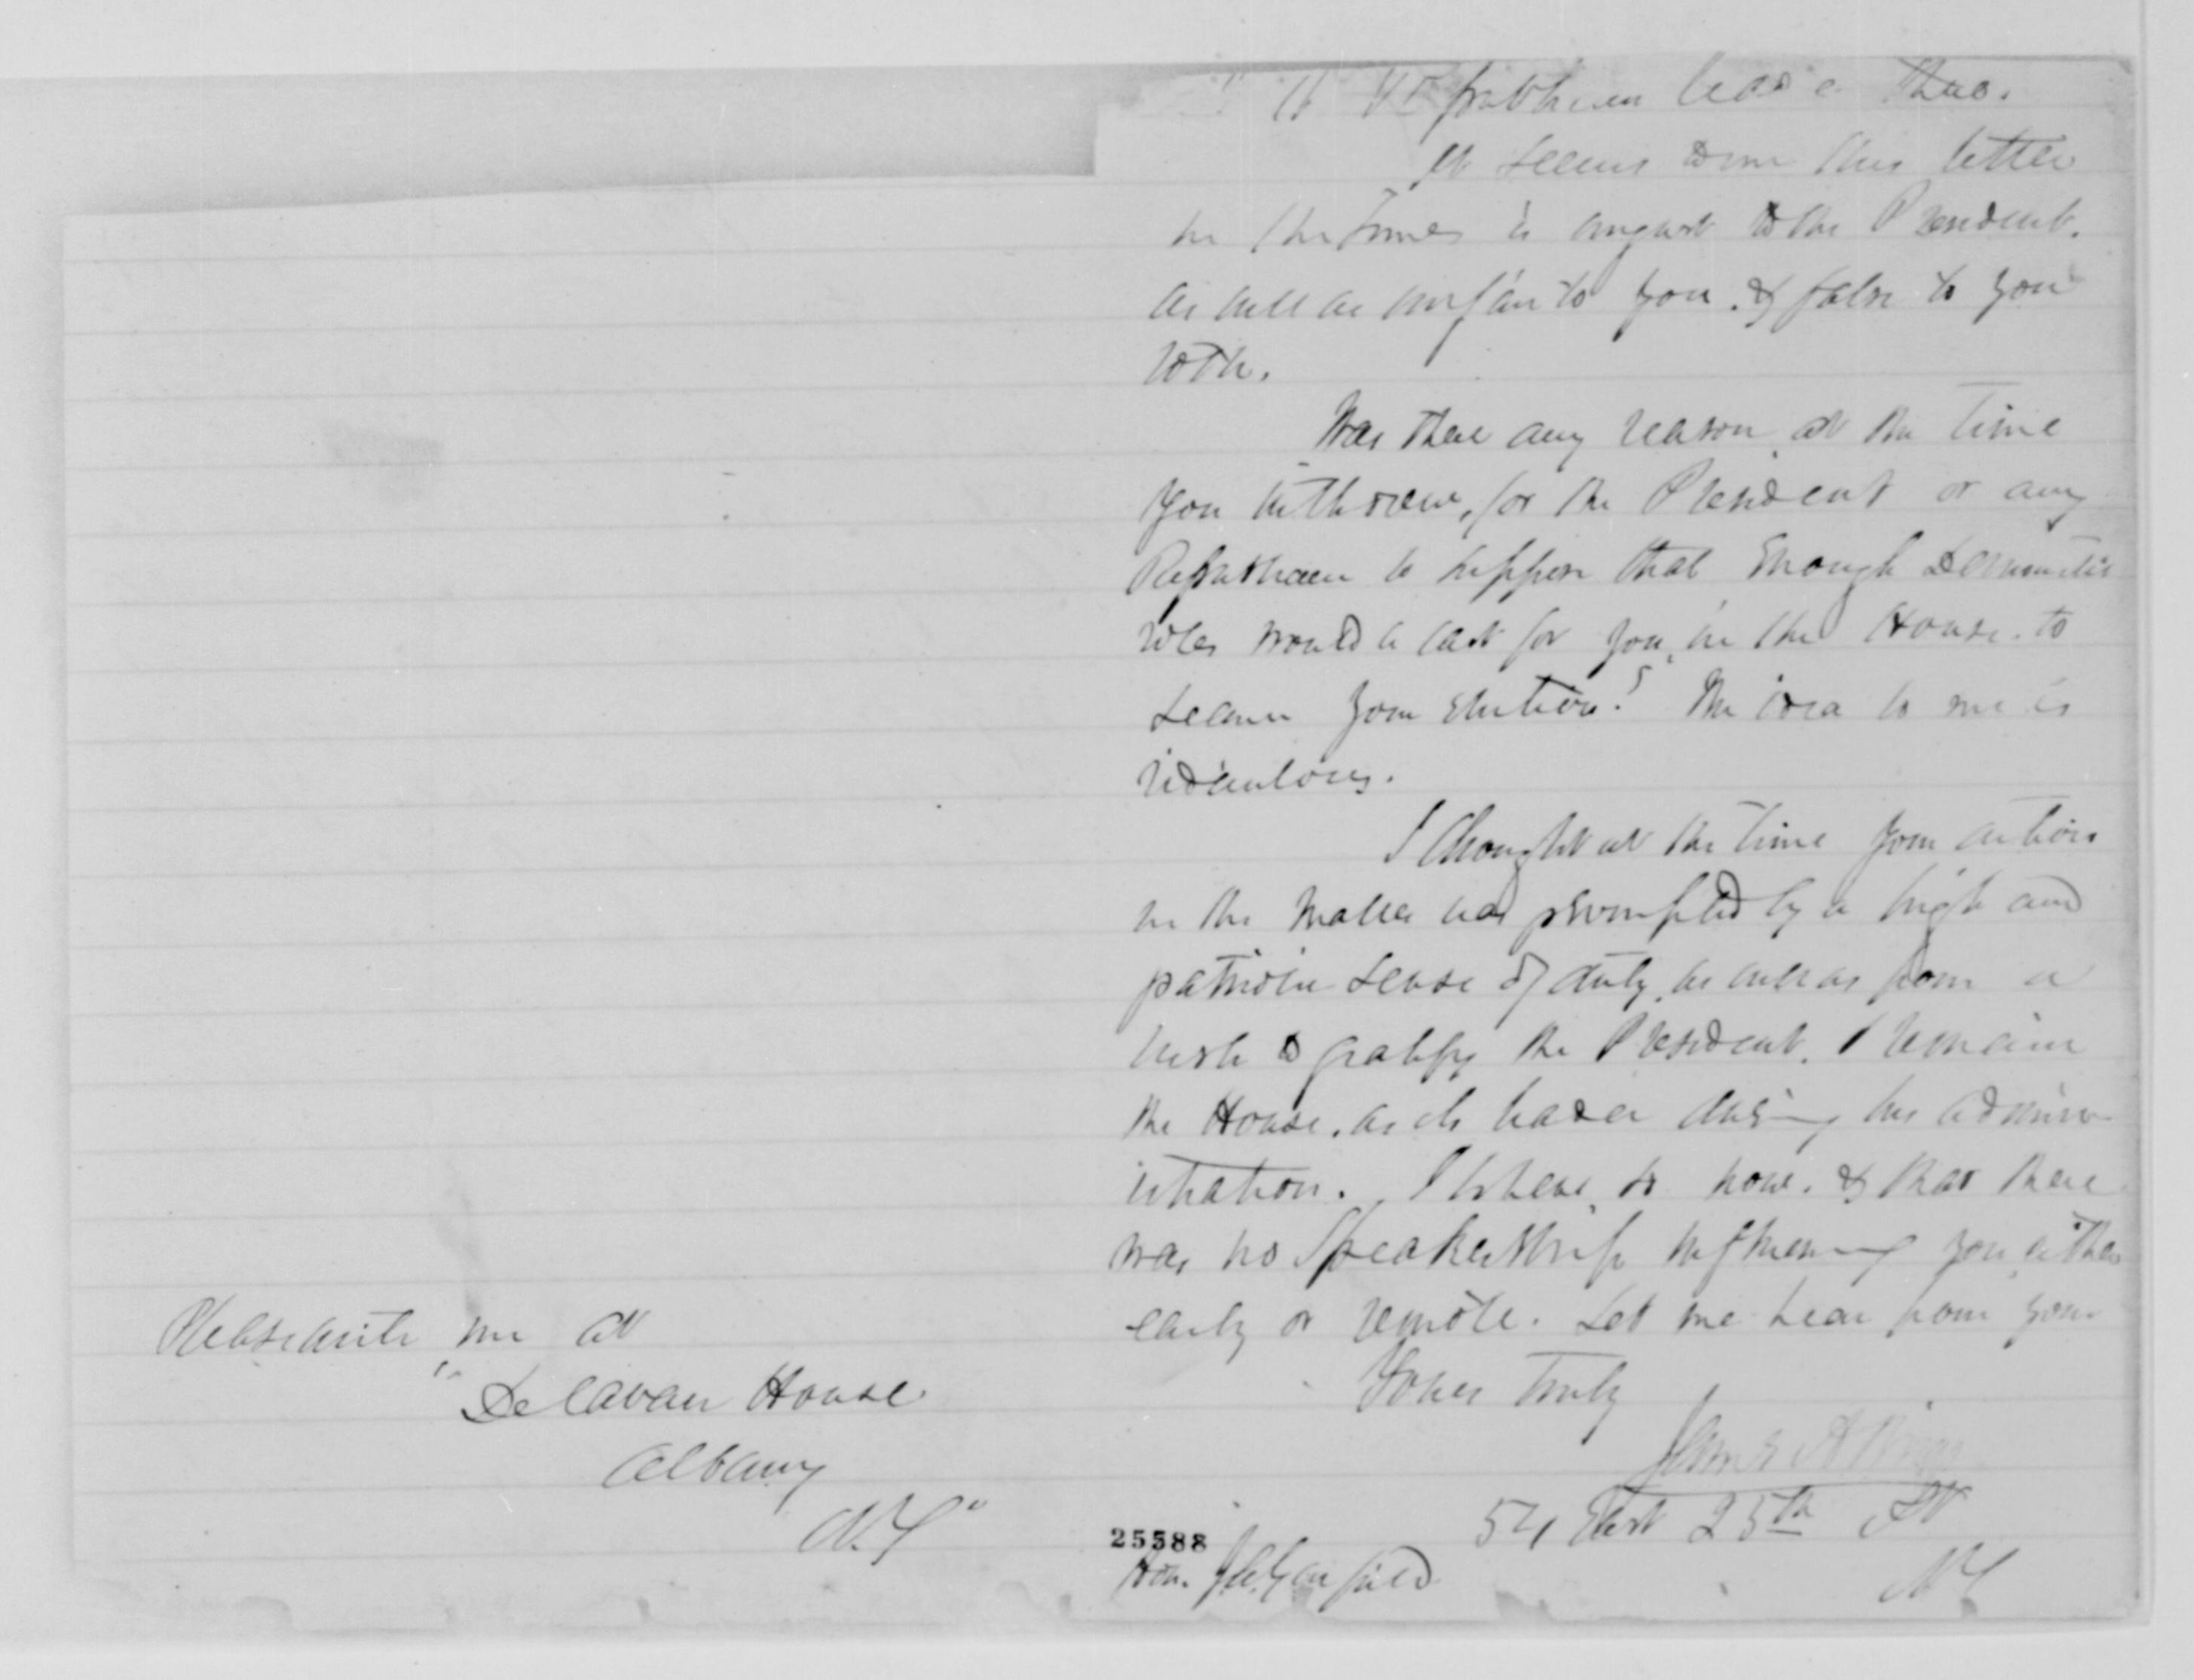 Republican leader thus.
It seems to me this letter
in the Times is unjust to the President.
as well as unfair to you. & false to you
both.
Was there any reason, at the time
you withdrew, for the President or any
Republican to suppose that enough Democratic
votes would be cast for you, in the House. to
secure your election? The idea to me is
ridiculous.
I thought at the time your action
in the matter was prompted by a high and
patriotic sense of duty, as well as from a
wish to gratify the President. & remain in
the House. as its leader during his admin-
istration. I believe so now. & that there
was no Speakership influencing you either
early or remote. Let me hear from you.
Yours truly
James A Briggs
54 East 25th St
NY
25588
Hon. J. A. Garfield
Please write me at
"Delavan House
Albany
N.Y"